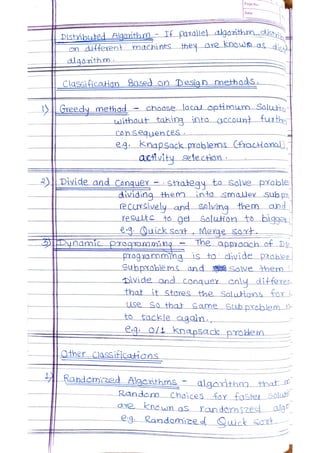 Distributed Algorithm - If parallel algorithm
on different machines they are known as
algorithm.
Classification Based on Design methods.
1) Greedy method - choose local optimum
without taking into account
consequences.
e.g. Knapsack problems (fractional),
activity selection.
2) Divide and Conquer - strategy to solve
dividing them into smaller
recursively and solving them and
results to get solution to bigger
e.g Quick sort, Merge sort.
3) Dynamic programming - The approach of
programming is to divide
subproblems and solve them
Divide and conquer only
that it stores the solutions for
use so that same subproblem
to tackle again.
e.g. 0/1 knapsack problem
Other classifications
1) Randomized Algorithms - algorithm that
Random choices for faster
are known as randomized
e.g. Randomized Quick sort.